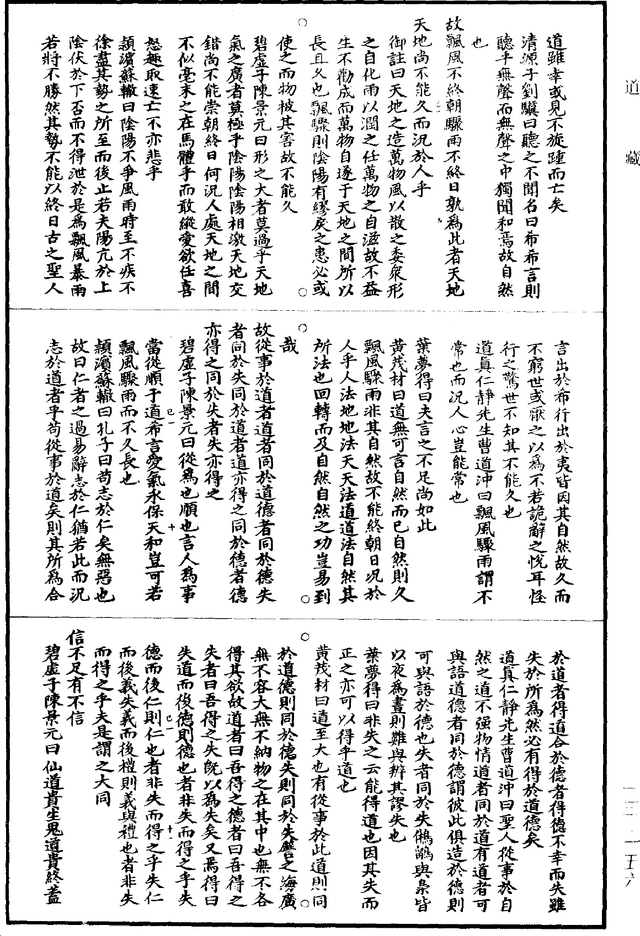 道藏
道雖幸或見不旋踵而亡矣
清源子劉驥曰聽之不聞名曰希希言則
聽乎無聲而無聲之中獨聞和焉故自然
也
故飄風不終朝驟雨不終日孰為此者天地
天地尚不能久而況於人乎
御註曰天地之造萬物風以散之委衆形
之自化雨以潤之任萬物之自滋故不益
生不勸成而萬物自遂于天地之間所以
長且久也飄驟則陰陽有繆戾之患必或
使之而物被其害故不能久
碧虛子陳景元曰形之大者莫過乎天地
氣之廣者莫極乎陰陽陰陽相激天地交
錯尚不能崇朝終日何況人處天地之間
不似毫末之在馬體乎而敢縱愛欲任喜
怒趣取速亡不亦悲乎
潁濱蘇轍曰陰陽不爭風雨時至不疾不
徐盡其勢之所至而後止若夫陽亢於上
陰伏於下否而不得泄於是為飄風暴雨
若將不勝然其勢不能以終日古之聖人
言出於希行出於夷皆因其自然故久而
不窮世或厭之以為不若詭辭之悅耳怪
行之驚世不知其不能久也
道真仁靜先生曹道沖曰飄風驟雨謂不
常也而況人心豈能常也
葉夢得曰夫言之不足尚如此
黃茂材曰道無可言自然而已自然則久
飄風驟雨非其自然故不能終朝日況於
人乎人法地地法天天法道道法自然其
所法也回轉而及自然自然之功豈易到
哉
故從事於道者道者同於道德者同於德失
者同於失同於道者道亦得之同於德者德
亦得之同於失者失亦得之
碧虛子陳景元曰從為也順也言人為事
當從順于道希言愛氣永保天和豈可若
飄風驟雨而不久長也
潁濱蘇轍曰孔子曰苟志於仁矣無惡也
故曰仁者之過易辭志於仁猶若此而況
志於道者乎苟從事於道矣則其所為合
於道者得道合於德者得德不幸而失雖
失於所為然必有得於道德矣
道真仁靜先生曹道沖曰聖人從事於自
然之道不強物情道者同於道有道者可
與語道德者同於德謂彼此俱造於德則
可與語於德也失者同於失鵂鶹與梟皆
以夜為晝則難與辨其謬失也
葉夢得曰非失之云能得道也因其失而
正之亦可以得乎道也
黃茂材曰道至大也有從事於此道則同
於道德則同於德失則同於失譬之海廣
無不容大無不納物之在其中也無不各
得其欲故道者曰吾得之德者曰吾得之
失者曰吾得之失既以為失矣又焉得曰
失道而後德則德也者非失而得之乎失
德而後仁則仁也者非失而得之乎失仁
而後義失義而後禮則義與禮也者非失
而得之乎夫是謂之大同
信不足有不信
碧虛子陳景元曰仙道貴生鬼道貴終蓋